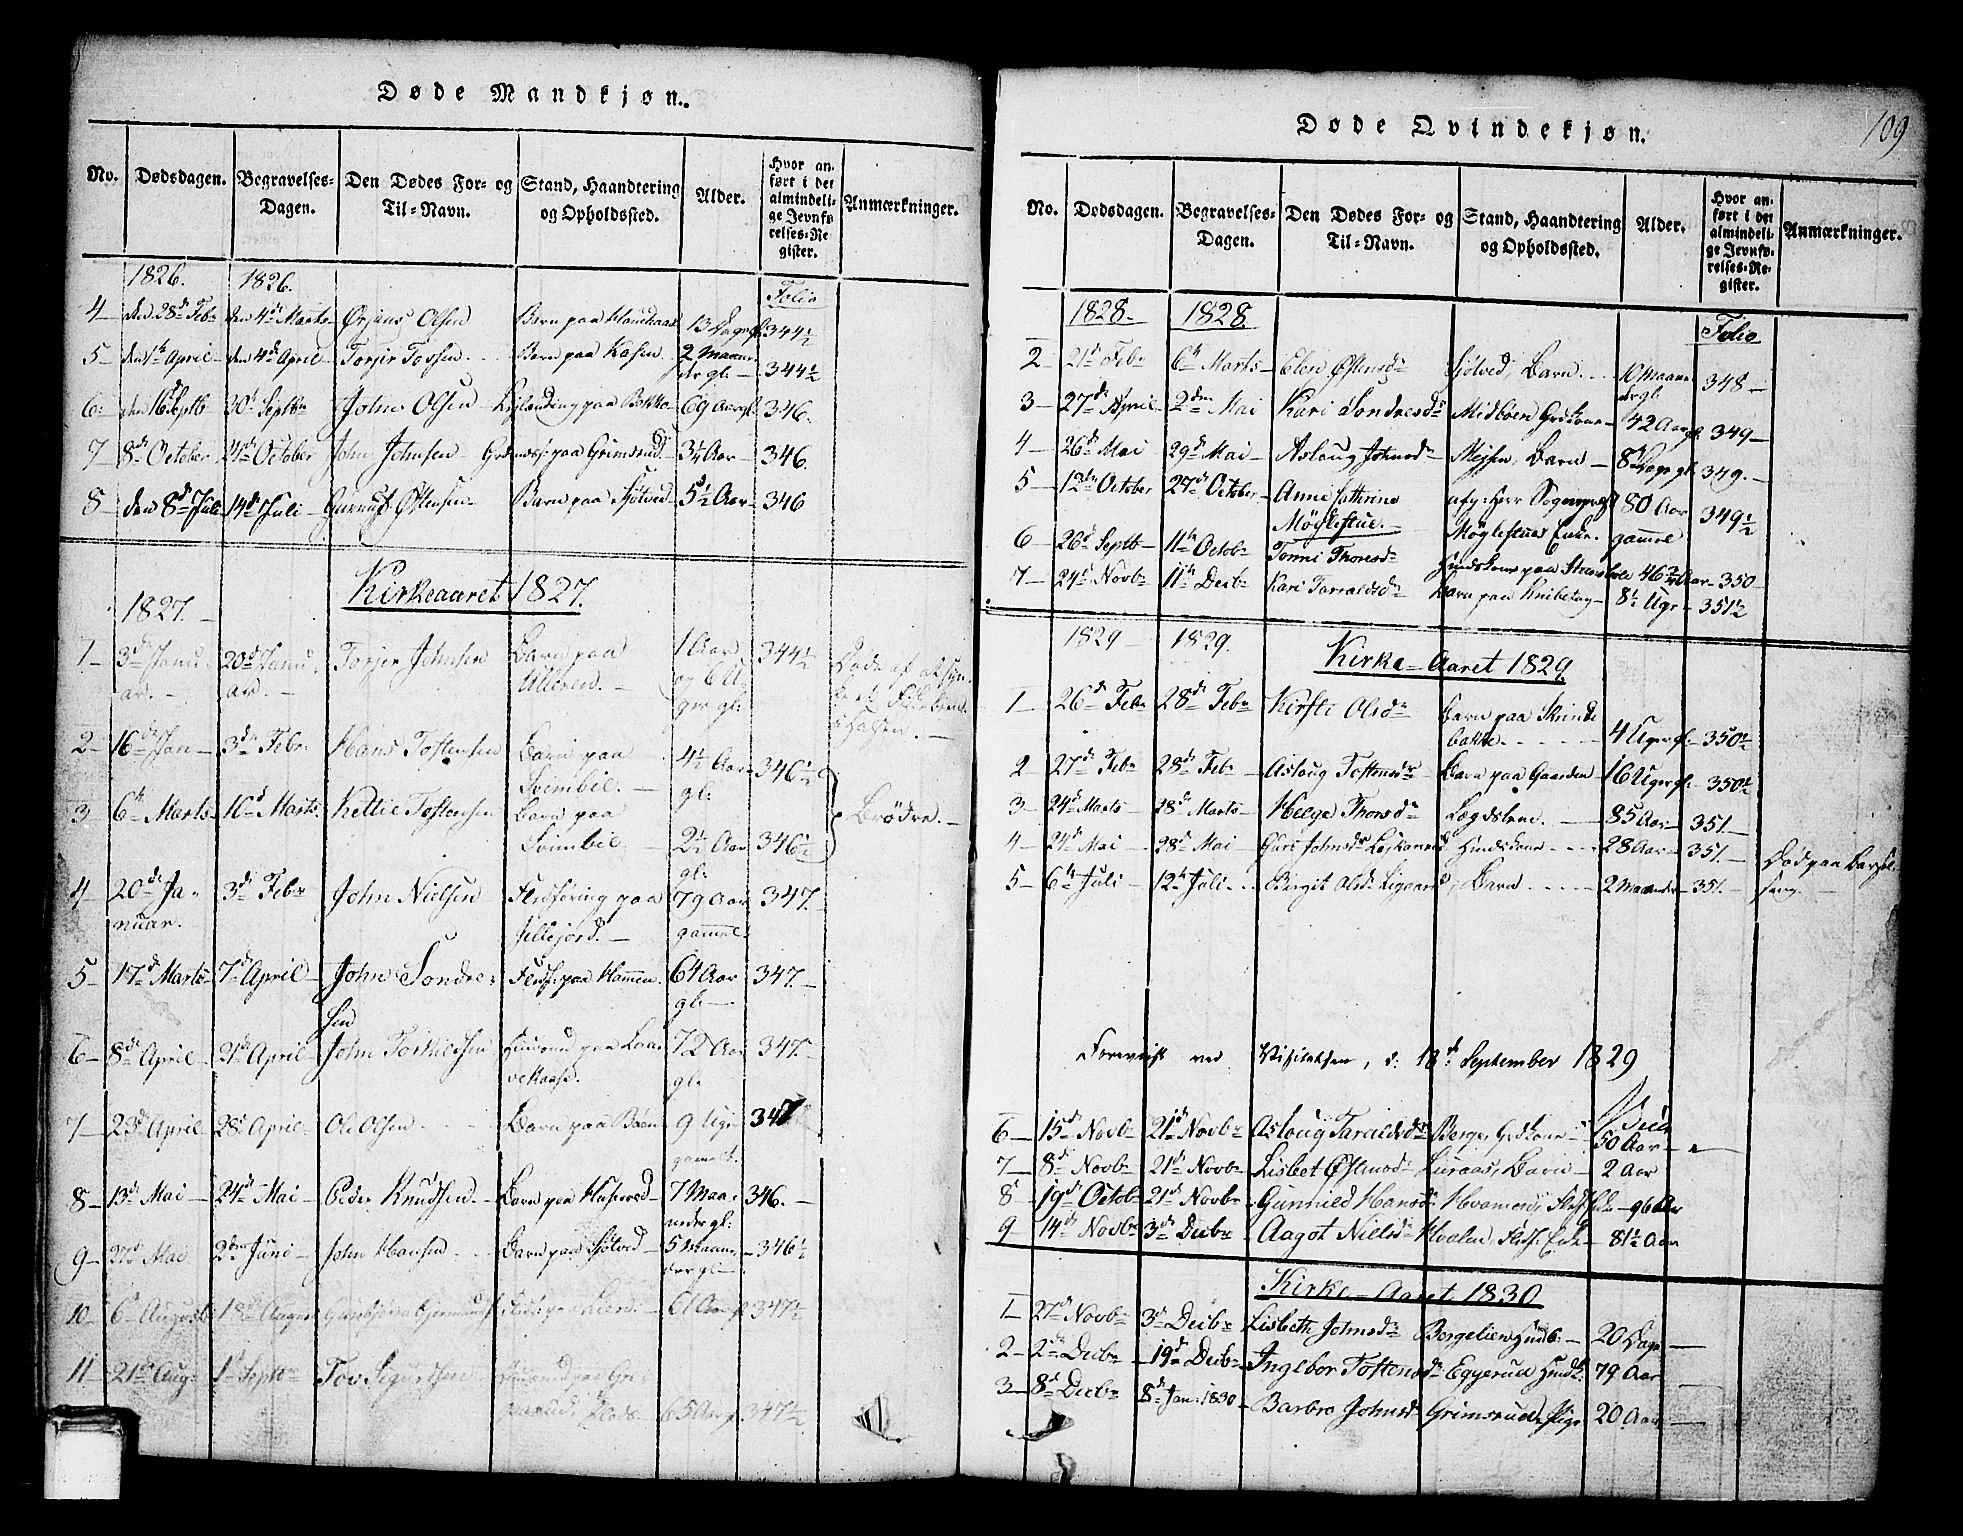 Døde Mandkjøn.
No. Dødsdagen. Begravelses-Dagen. Den Dødes For- og Til-Navn. Stand, Haandtering og Opholdssted. Alder. Hvor anført i det almindelige Jevnførelses-Register. Anmærkninger.
1826. 1826. Folio
4 den 28de Febr den 4de Marts Ørjans Olsen Barn paa 13 Dage gl. 344½
5 den 1ste April den 4de April Torjer Tovsen Barn paa Kasen 2 Maaneder gl 344½
6 den 16de Septb 30te Septbr John Olsen paa Bakka 69 Aar gl. 346.
7 8de October 24de October John Johnsen paa Grimsrud 3¼ Aar 346.
8 den 8de Juli 14de Juli Gunnuf Østensen Barn paa Sjötved 5½ Aar 346
Kirkeaaret 1827.
1827.
1 3de Januar. 20de Januar. Torjer Johnsen Barn paa Ulleren. 1 Aar og 6 Uger gl: 344½ Døde af
2 16de Jan 3de Febr Hans Tostensen Barn paa Svimbil. 4½ Aar gl: 346½
3 6te Marts 10de Marts. Kittil Tostensen Barn paa Svimbil 2½ Aar gl: 346½ Brödre.
4 20de Januar. 3de Febr John Nielsen Flidføring paa Hillejord. 79 Aar gammel 347.
5 17de Marts 7de April John Sondresen Flidf: paa Hammen 64 Aar gl 347.
6 8de April 21de April John Torkildsen Huusmand paa 72 Aar gl: 347.
7 23de April 28de April Ole Olsen Barn paa Bøen 9 Uger gamelt. 347
8 13de Mai 24de Mai Peder Knudsen Barn paa 7 Maaneder gl: 346.
9 27de Mai 2den Juni John Hansen Barn paa Sjötved 5 Maaneder gl 346½
10 6te August 18de August 61 Aar gl 347½
11 21de Aug 1ste Septbr Tov Sigurdsen Huusmand paa Plads 65 Aar gl 347½
Døde Qvindekjøn.
109
No. Dødsdagen. Begravelses-Dagen. Den Dødes For- og Til-Navn. Stand, Haandtering og Opholdssted. Alder. Hvor anført i det almindelige Jevnførelses-Register. Anmærkninger.
1828. 1828. Folio
2 21de Febr 6te Marts Elen Østensdr Sjötved, Barn. 10 Maaneder gl 348
3 27de April 2den Mai Kari Sondresdr Midböen Grdkone 42 Aar gl. 349
4 26de Mai 29de Mai Aslaug Johnsdr Mejsen, Barn 8 Dage gl 349.
5 12te October 27de October Anne Cathrine Møglestue. afg: Herr Sognepræst Møglestues Enke. 80 Aar gamel 349½
6 26de Septb 11te Octobr Tonne Thorsdr Huuskone paa 46 Aar 350
7 24de Novbr 11te Decbr Kari Tarraldsdr Barn paa Knibetag 8½ Uger 351½
1829 1829. Kirke-Aaret 1829.
1 26de Febr 28de Febr Kirsti Olsdr Barn paa Skrindebakke 4 Uger gl. 350½
2 27de Febr 28de Febr Aslaug Tostensdr Barn paa Gaarden 16 Uger gl. 350½
3 24de Marts 28de Marts Helge Thorsdr Lægdslem. 85 Aar 351
4 24de Mai 28de Mai Guri Johnsdr Huuskone 28 Aar 351. Død paa Barselseng.
5 6te Juli 12te Juli Birgit Olsdr Barn 2 Maaneder 351.
Foreviist ved Visitatsen, d: 18de September 1829
6 15de Novbr 21de Novbr Aslaug Taraldsdr Berge, Grdkone 50 Aar
7 8de Novbr 21de Novbr Lisbet Østensdr Luraas, Barn 2 Aar
8 19de Octobr 21de Novbr Gunnild Hansdr 96 Aar
9 14de Novbr 3de Decbr Aagot Nielsdr Hvalen, Flidf: Enke 81½ Aar
Kirke-Aaret 1830
1 27de Novbr 3de Decbr Lisbeth Johnsdr Bergelien, Huusb: 20 Dage
2 2den Decbr 19de Decbr Ingebor Tostensdr Eggerud Huusk: 79 Aar
3 8de Decbr 8de Jan: 1830 Barbro Johnsdr Grimsrud, Pige 20 Aar